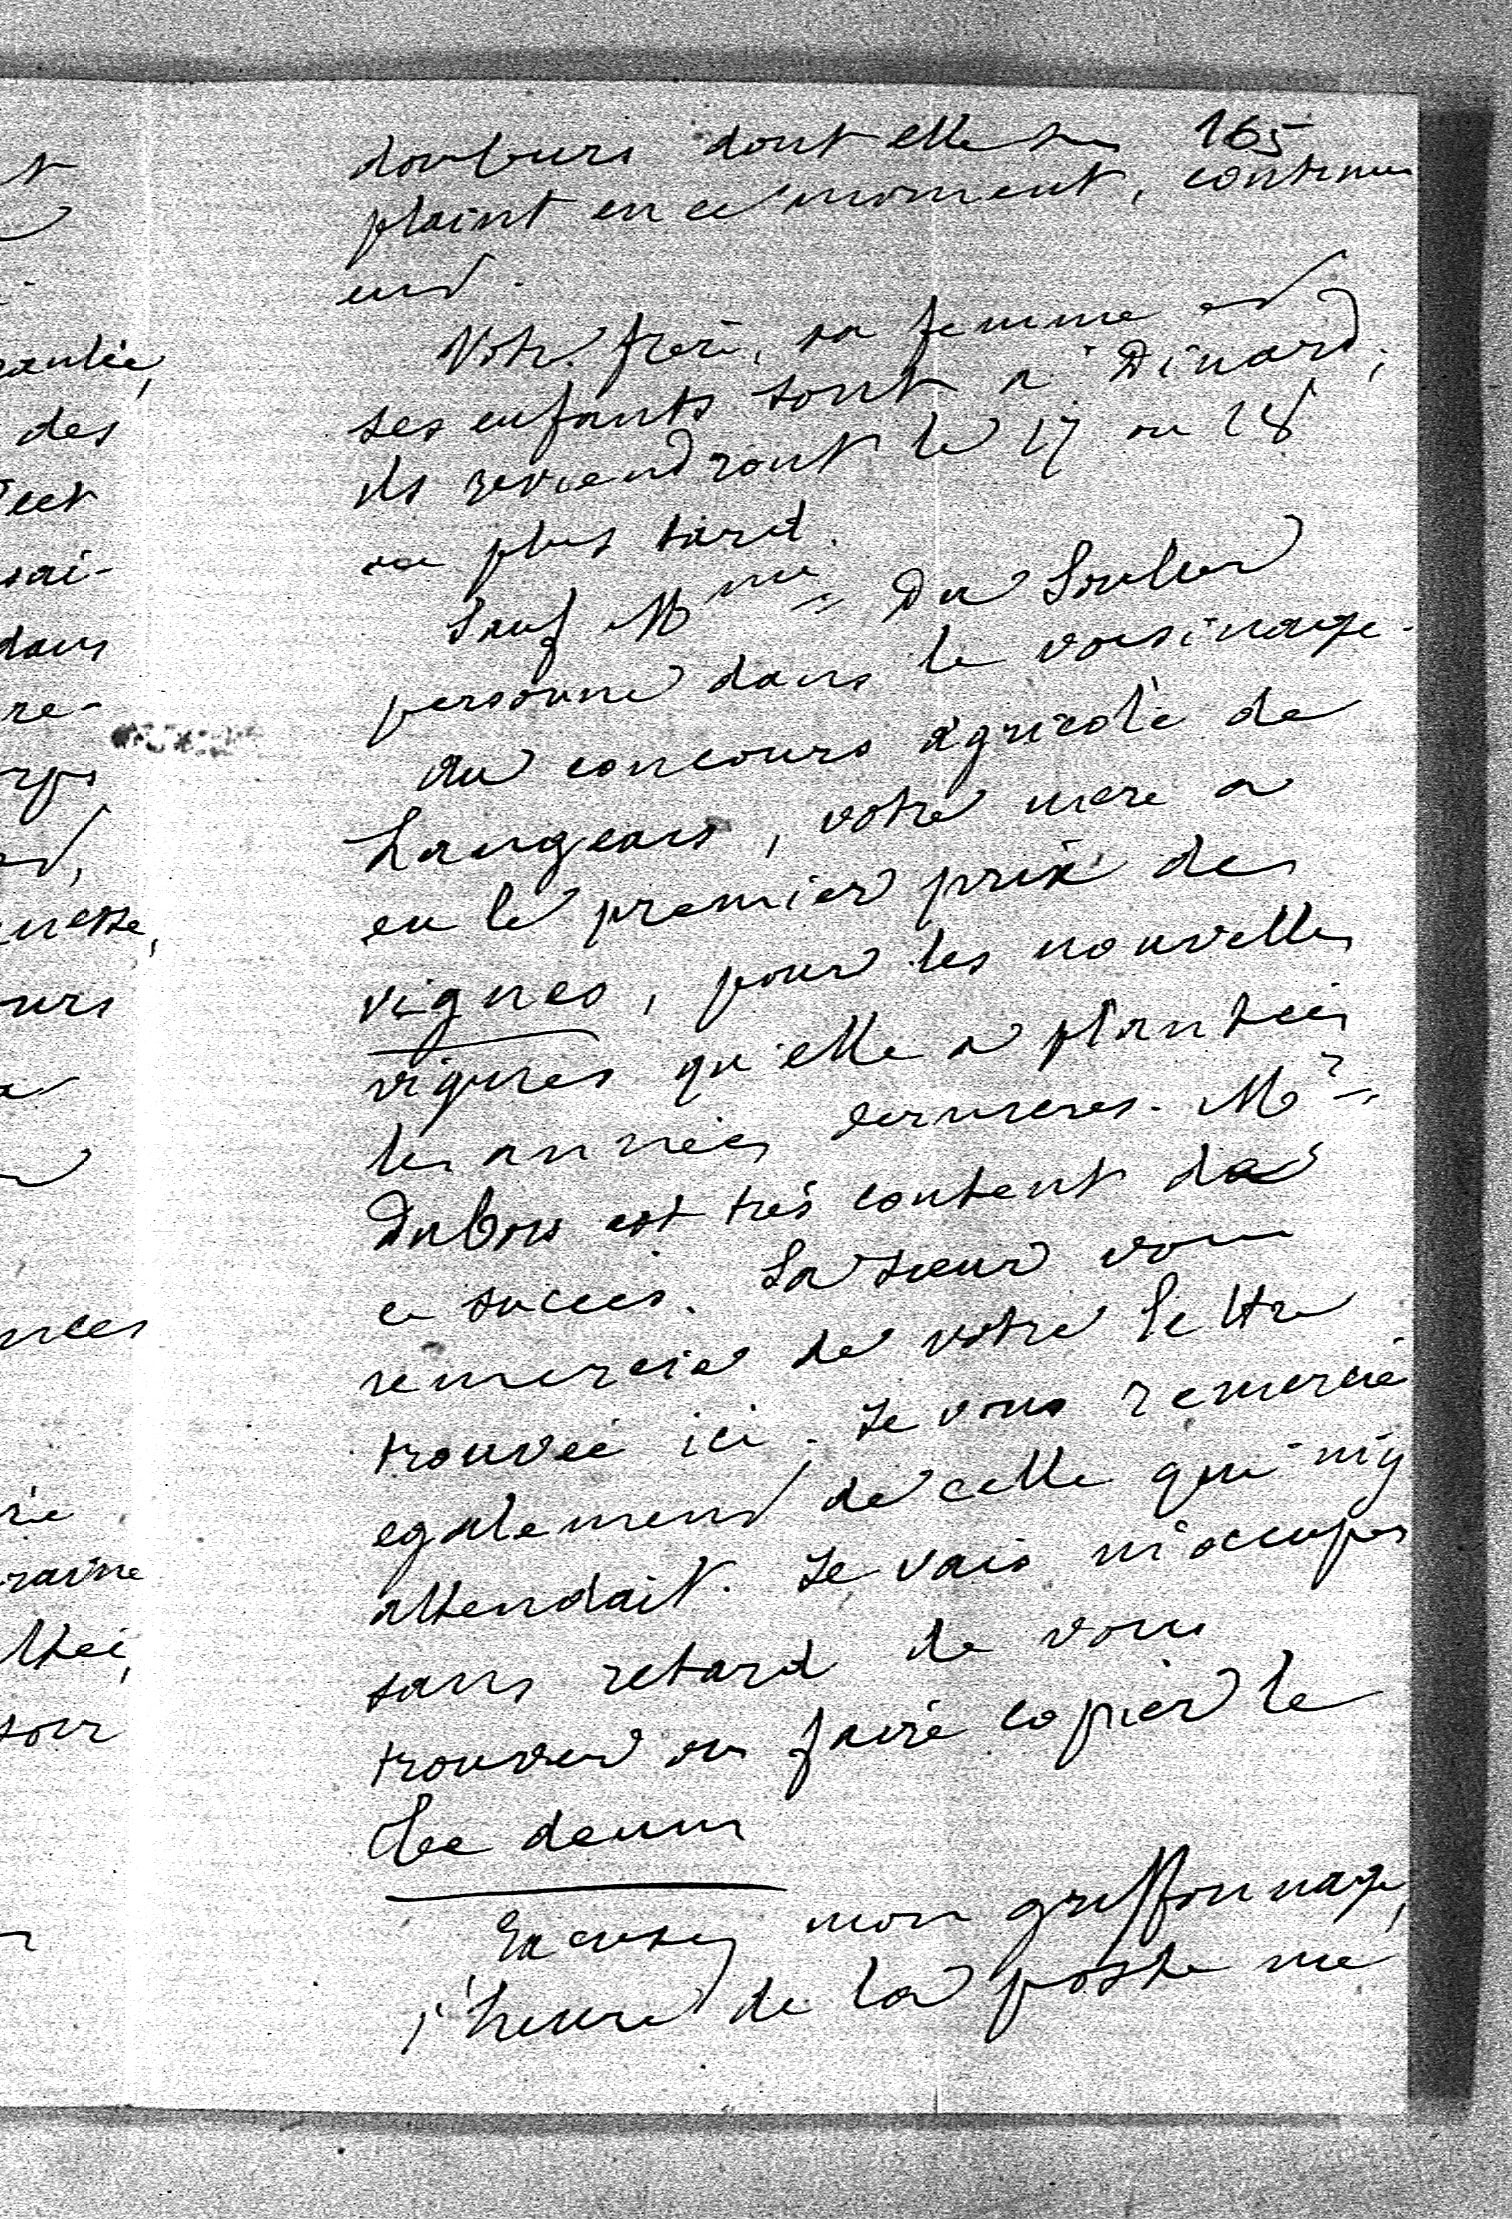 165
douleurs dont elle se
plaint en ce moment, continu
ent.
Votre frère, sa femme et
ses enfants sont à Dinard,
ils reviendront le 17 ou 18
au plus tard.
Sauf Mme Du Soulier
personne dans le voisinage.
Au concours agricole de
Langeais, votre mère a
eu le premier prix des
vignes, pour les nouvelles
vignes qu'elle a plantées
les années dernières. Mr
Dubois est très content de
ce succès. Sa sœur vous
remercie de votre lettre
trouvée ici. Je vous remercie
egalement de celle qui m'y
attendait. Je vais m'occuper
sans retard de vous
trouver ou faire copier le
Te deum
Excusez mon griffonnage,
l'heure de la poste me
des
dans
re-